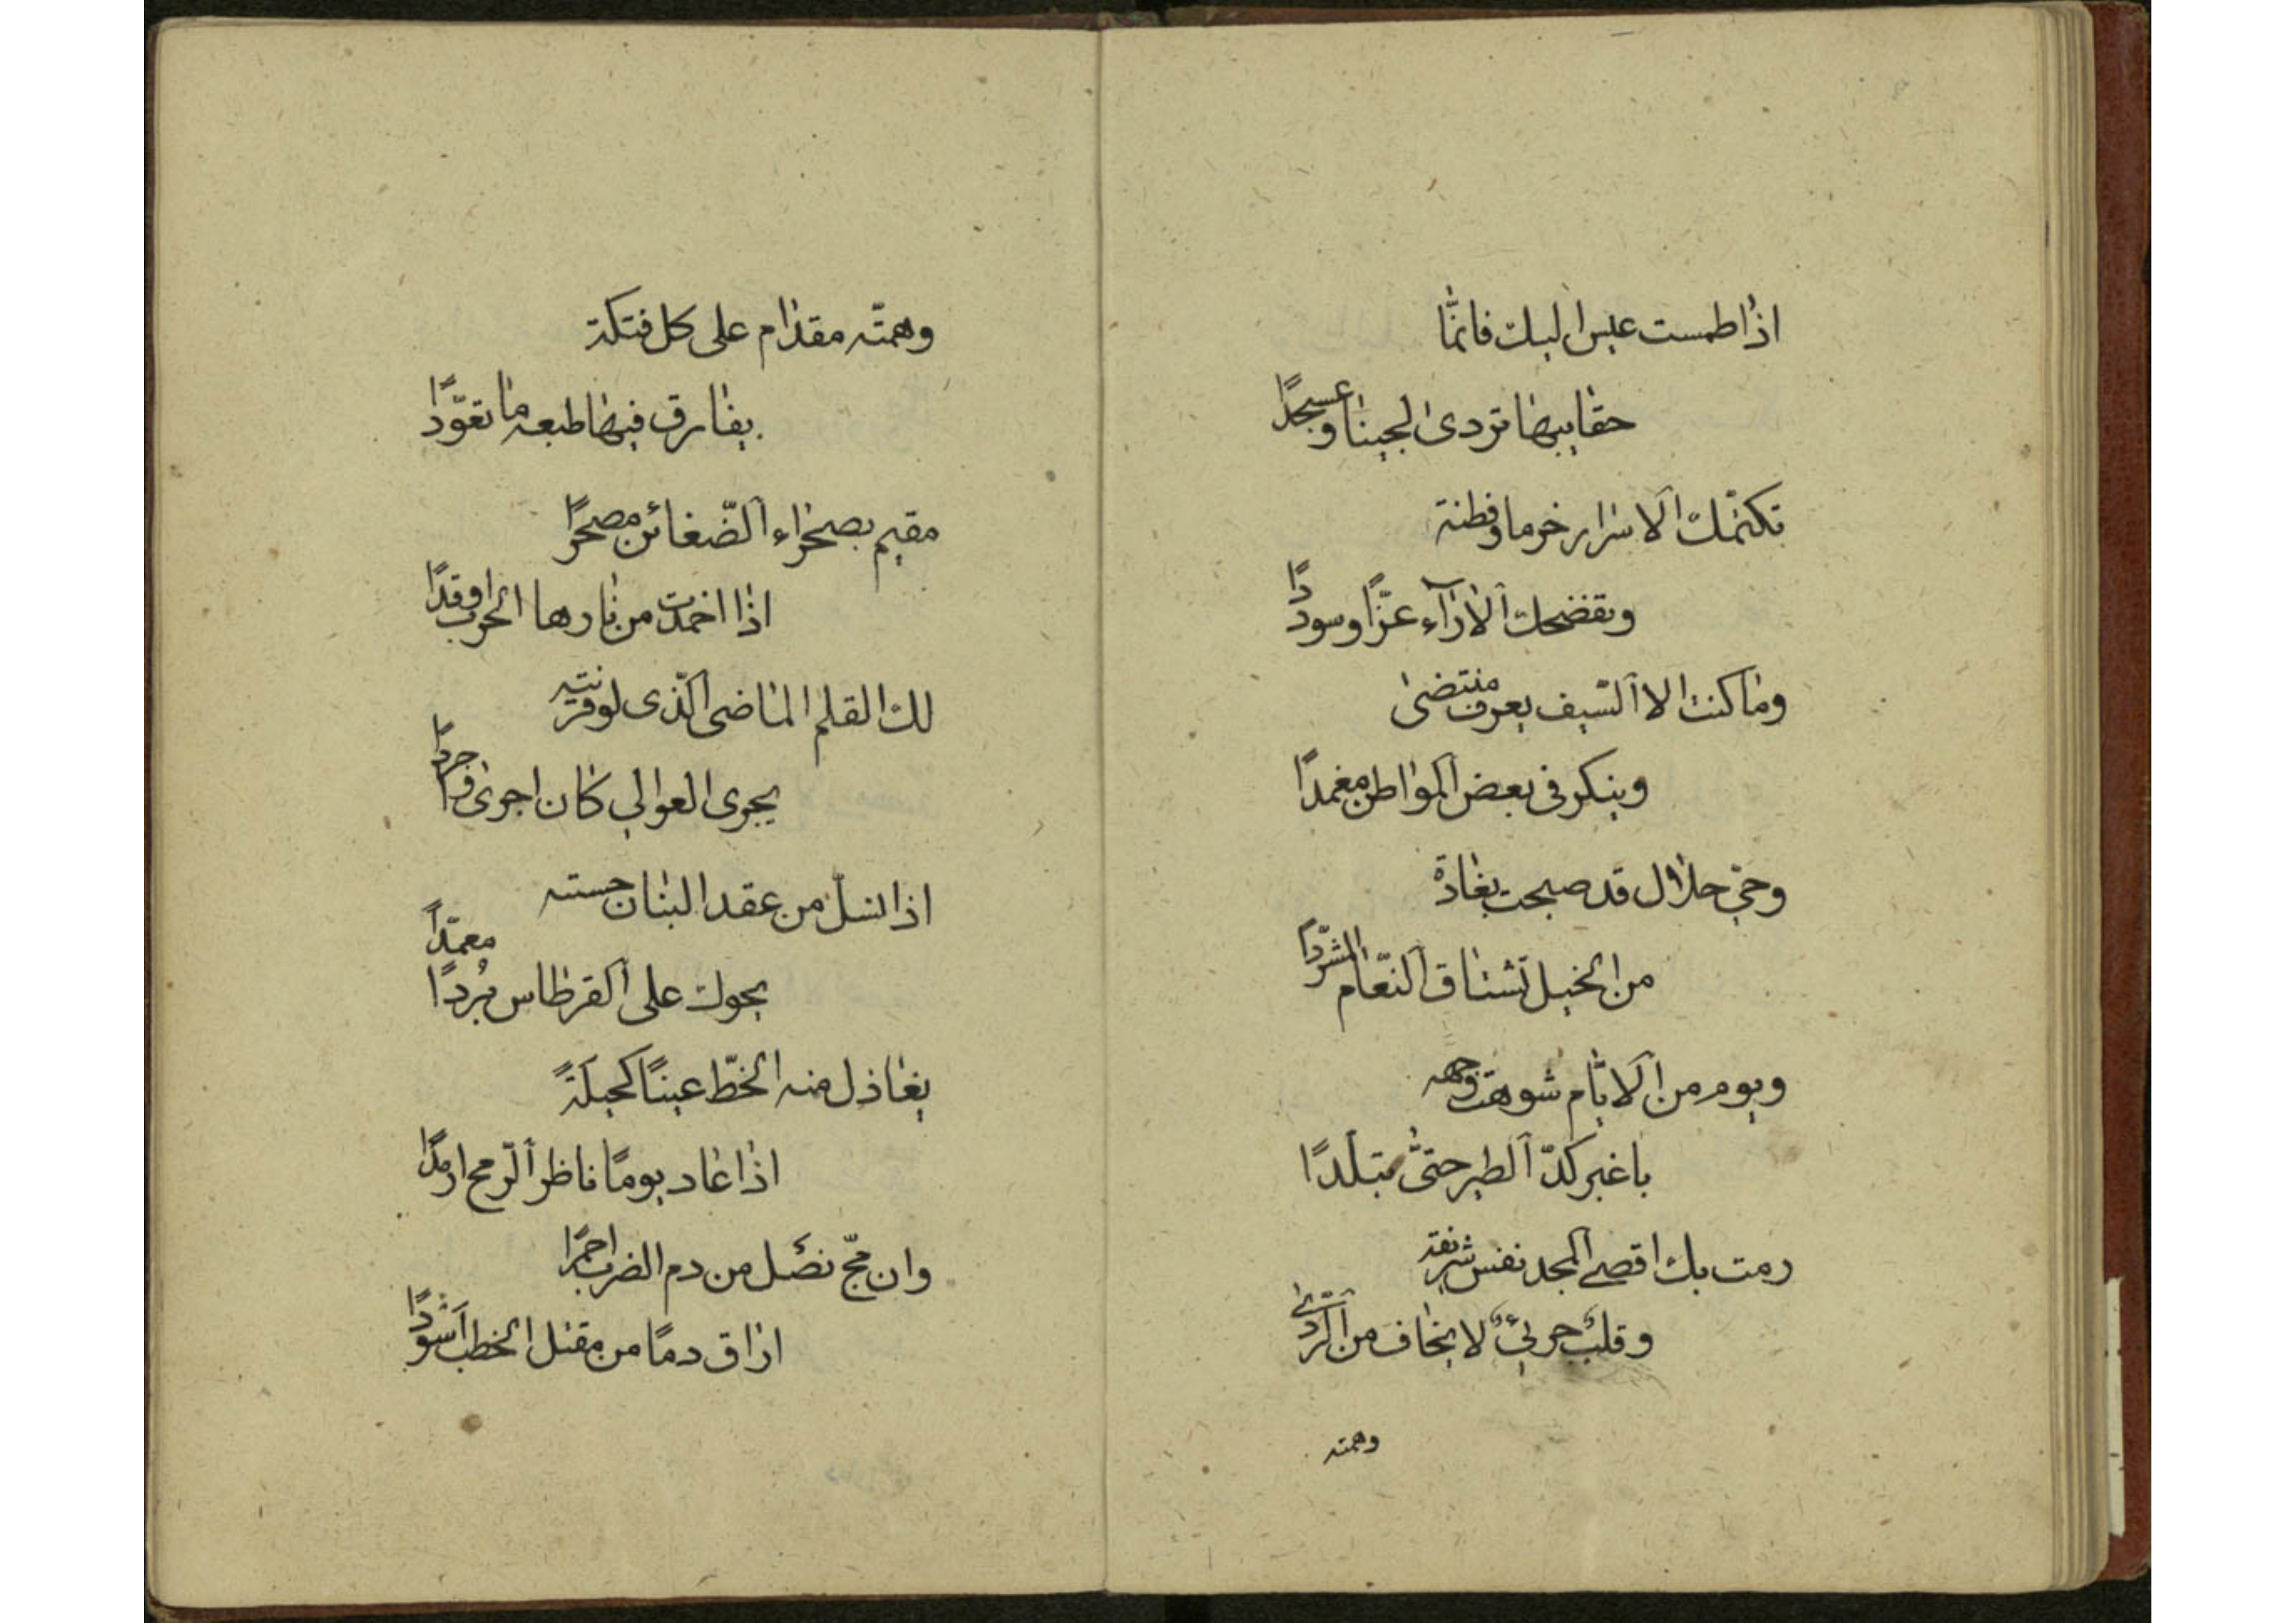 اذا طمست عيس اليك فانما
حقايبها تزدى لجينا وعسجدًا
تكتمك الاسرار خوما وفطنة
وتفضحك الاراء عزًا وسوددًا
وما كنت الا السّيف يعرف منتضى
وينكر فى بعض المواطن مغمدًا
وحىّ حلال قد صبحت بغادة
من الخيل تشتاق النّعام المشرّدًا
ويوم من الايّام شوهت وجهه
باغبر كدّ الطير حتّى تبلّدًا
رمت بك اقصى المجد نفس شريفة
وقلبٌ جرىٌ لا يخاف من الرّدى
وهمته
وهمّته مقدام على كل فتكة
يفارق فيها طبعه ما تعوّدًا
مقيم بصحراء الضّغائن مصحرًا
اذا اخمدت من نارها الحرب اوقدًا
لك القلم الماضى الّذى لو قرنته
يجرى العوالي كان اجرى واجردًا
اذا انسل من عقد البنان حسبته
يحوك على القرطاس بُردًا معمّدًا
يغاذل منه الخطّ عينًا كحيلةً
اذا عاد يومًا ناظر الرّمح ارمدًا
وان مجّ نصل من دم الضرب احمرًا
اراق دمًا من مقتل الخطب اسودًا